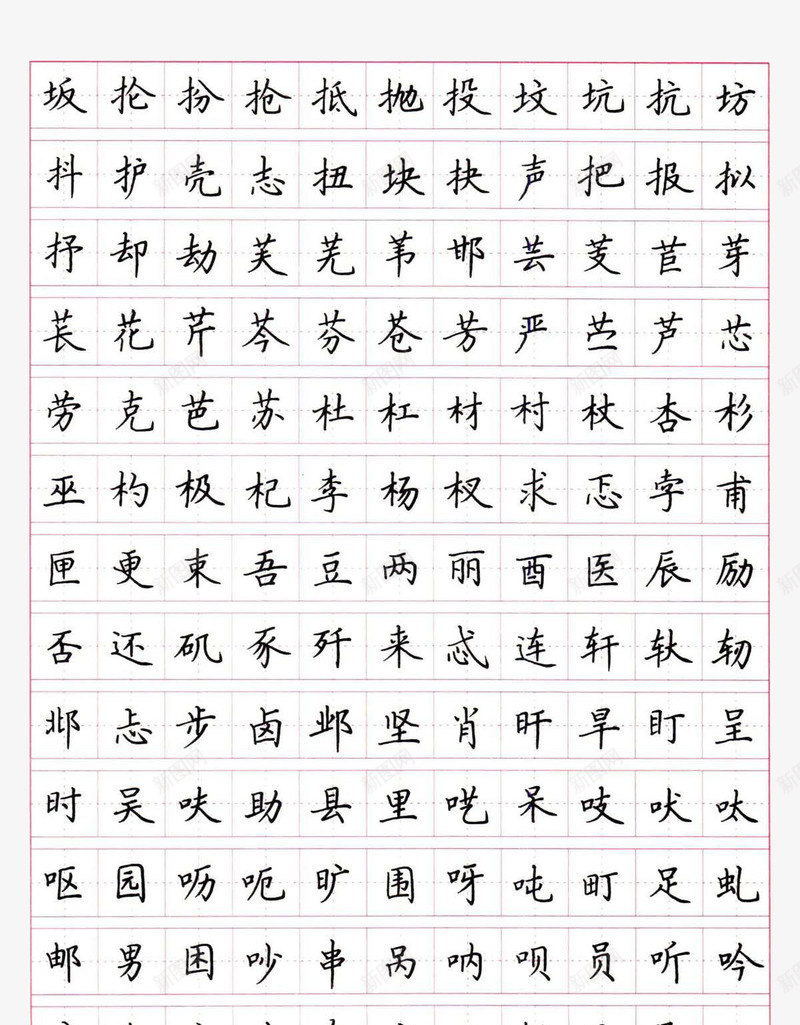 坂抡扮抢抵抛投坟坑抗坊
抖护壳志扭块抉声把报拟
抒却劫芙芜苇邯芸芰苣芽
苌花芹芩芬苍芳严苎芦芯
劳克芭苏杜杠材村杖杏杉
巫杓极杞李杨杈求忑孛甫
匣更束吾豆两丽酉医辰励
否还矶豕歼来忒连轩轪轫
邶忐步卤邺坚肖旰旱盯呈
时吴呋助县里呓呆吱吠呔
呕园呖呃旷围呀吨町足虬
邮男困吵串呙呐呗员听吟